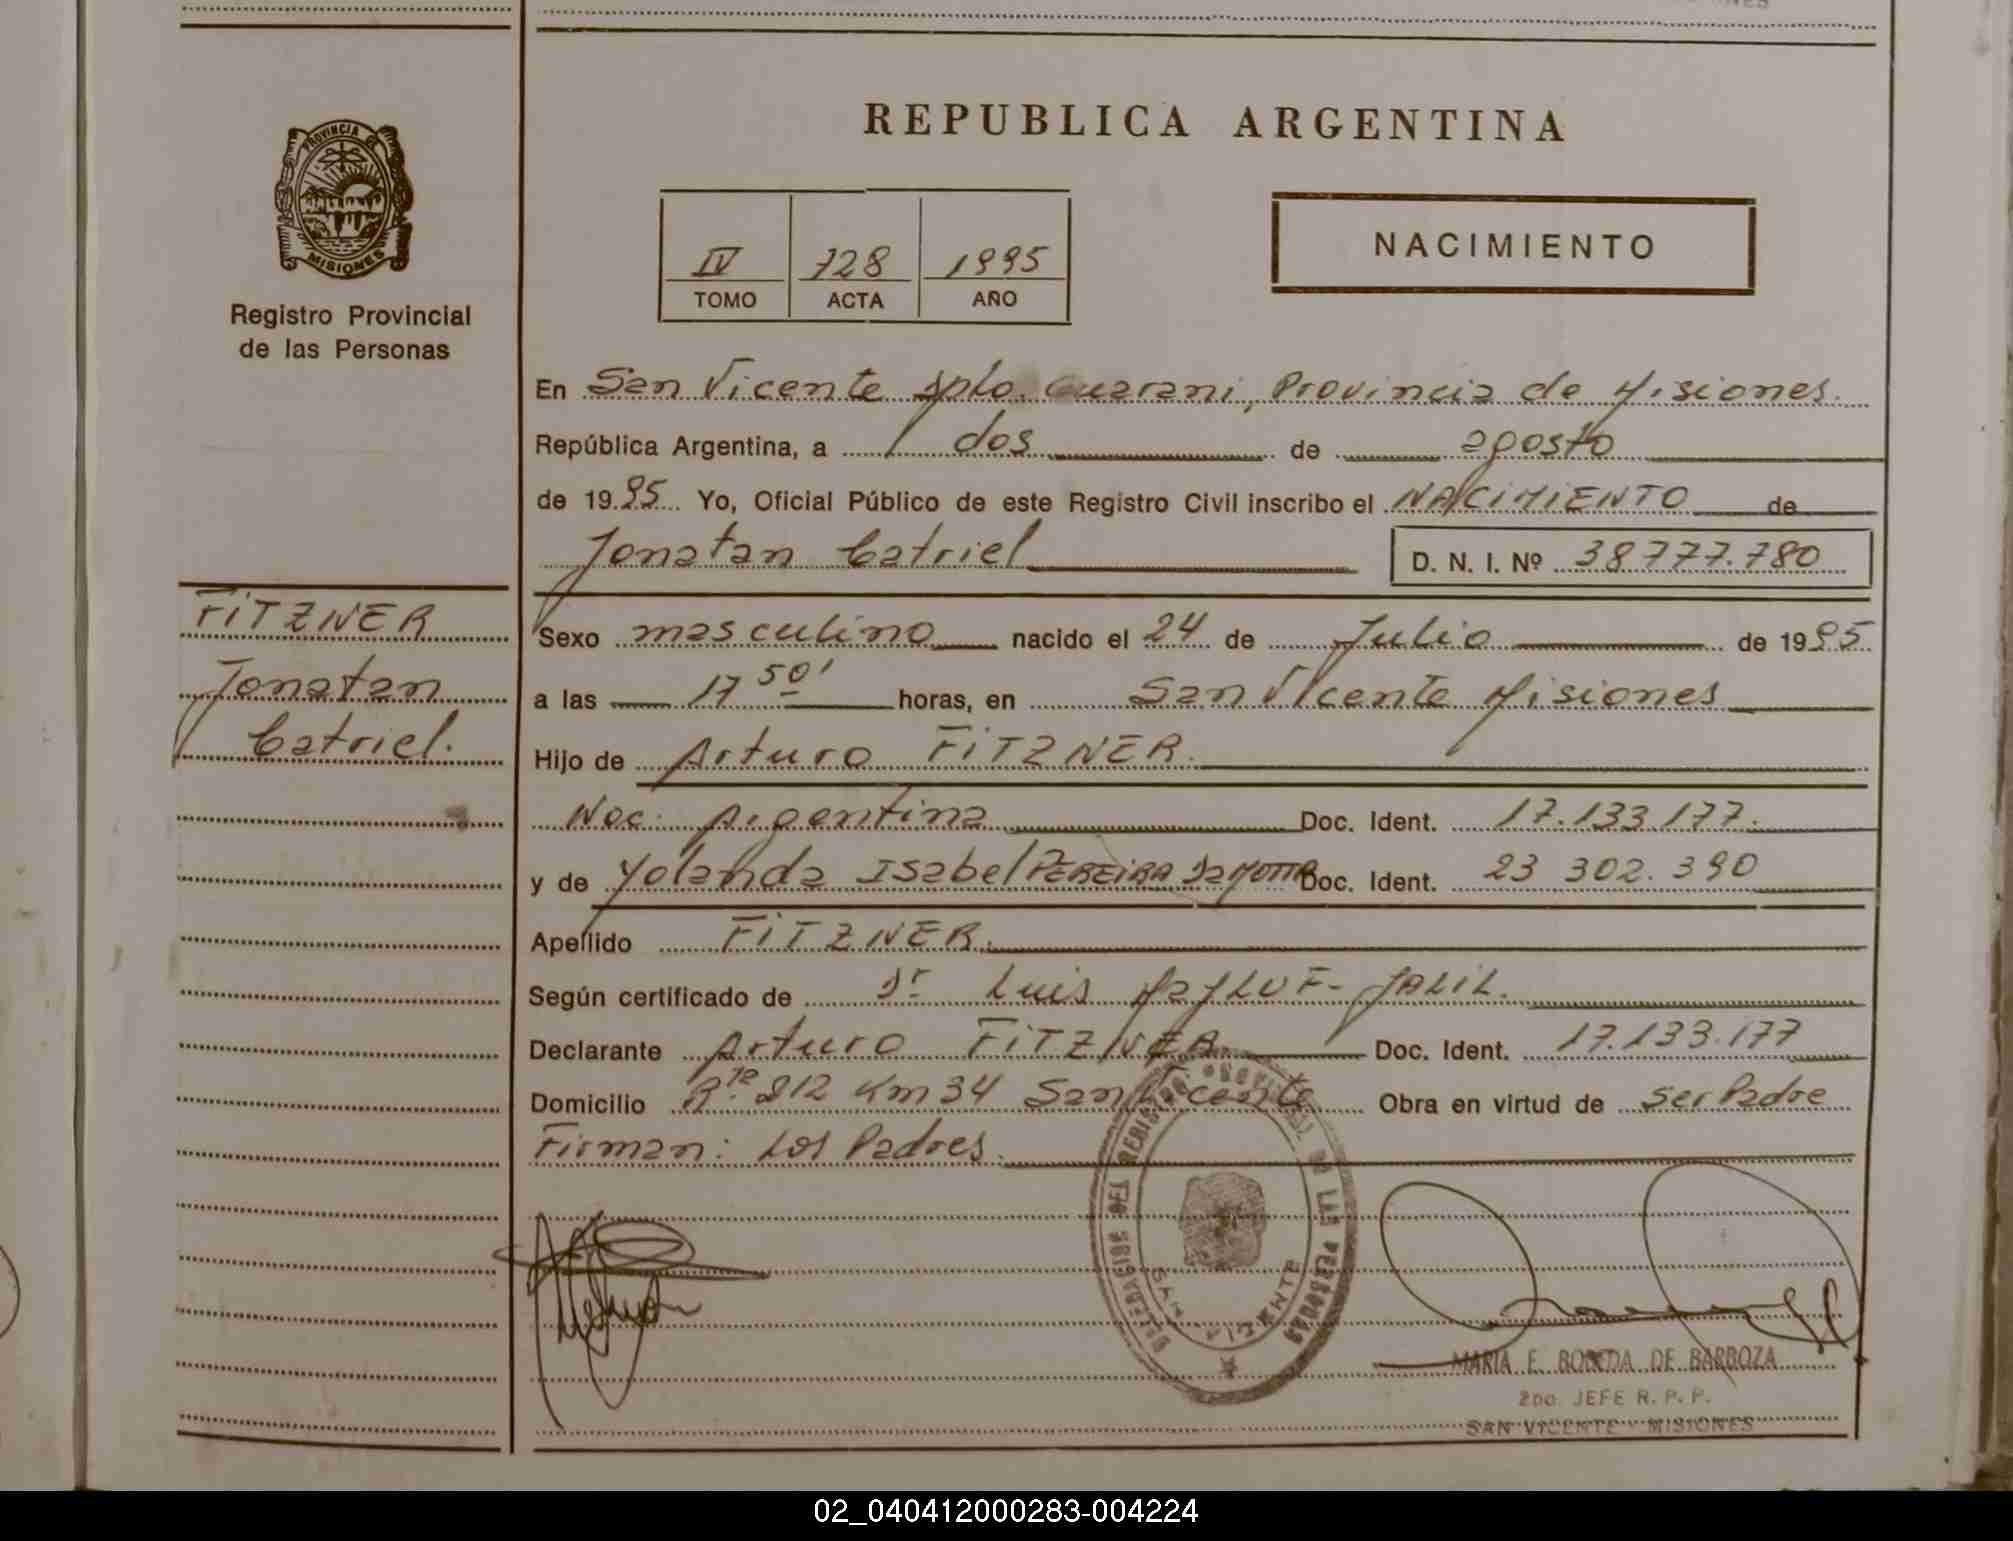 PROVINCIA DE
MISIONES
Registro Provincial
de las Personas
FITZNER
Jonatan
Catriel.
REPUBLICA ARGENTINA
IV 728 1995
TOMO ACTA AÑO
NACIMIENTO
En San Vicente Dpto. Guarani, Provincia de Misiones.
República Argentina, a dos de agosto
de 1995 Yo, Oficial Público de este Registro Civil inscribo el NACIMIENTO de
Jonatan Catriel D. N. I. Nº 38777.780
Sexo masculino nacido el 24 de Julio de 1995
a las 17 50' horas, en San Vicente Misiones
Hijo de Arturo FITZNER.
Nac. Argentina Doc. Ident. 17.133.177.
y de Yolanda Isabel PEREIRA Da MOTTA Doc. Ident. 23 302.390
Apellido FITZNER.
Según certificado de Dr Luis JALIL.
Declarante Arturo FITZNER Doc. Ident. 17.133.177
Domicilio Rta. 212 Km 34 San Vicente Obra en virtud de ser Padre
Firman: Los Padres.
DELEGACION DEL REGISTRO PROVINCIAL DE LAS PERSONAS
SAN VICENTE
MARIA E. DE BARBOZA
2DO. JEFE R. P. P.
SAN VICENTE - MISIONES
02_040412000283-004224